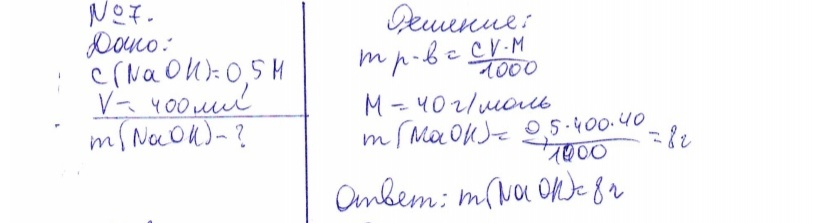 №7.
Дано:
C(NaOH)=0,5M
V=400мл
m(NaOH)-?
Решение:
m р-в = CV·M/1000
M = 40 г/моль
m(NaOH)= 0,5·400·40/1000 = 8г
Ответ: m(NaOH)=8г